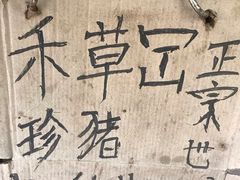 禾草
珍猪
正宗世